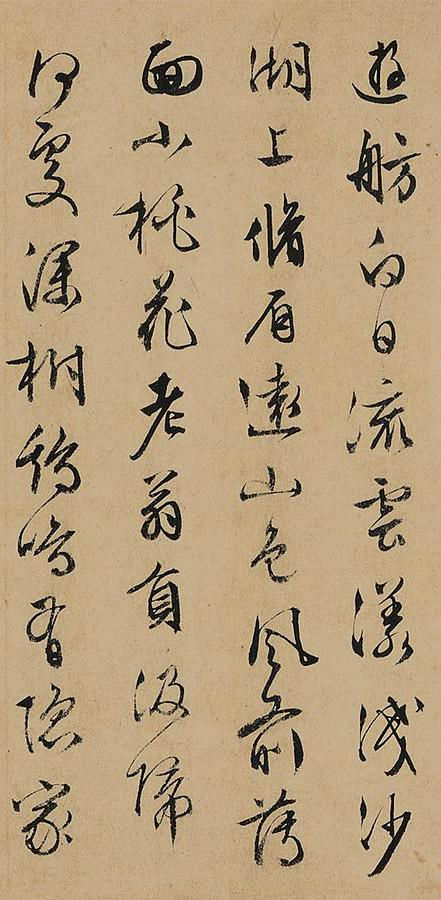 遊舫白日流雲漾淺沙
湖上脩眉遠山色風前薄
面小桃花老翁負汲歸
何處深樹鷄鳴有隱家